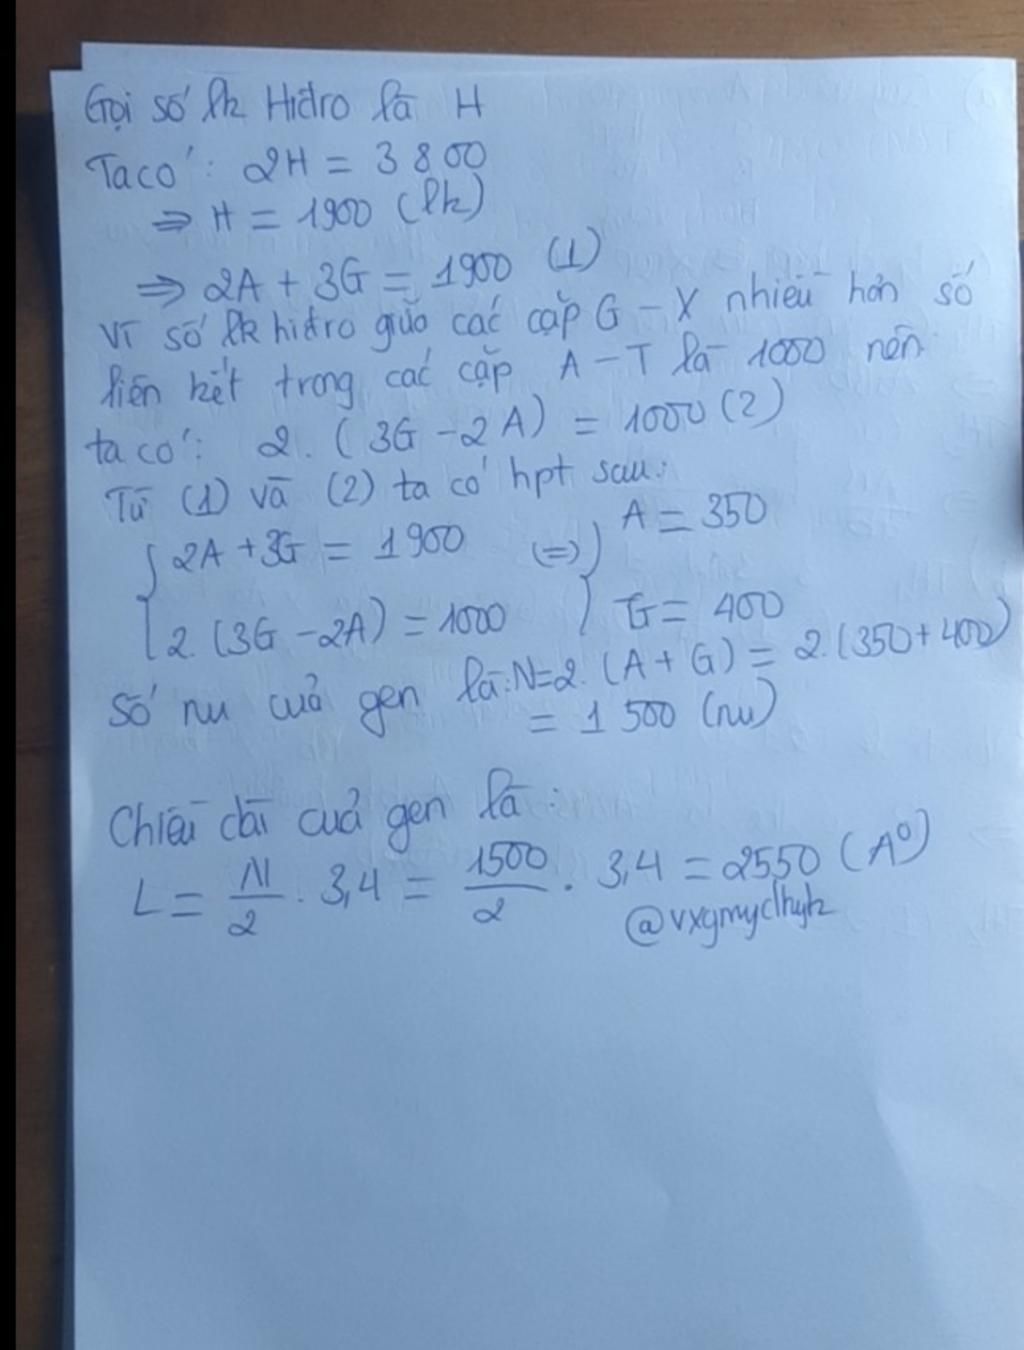 Gọi số lk Hiđro là H
Ta có: 2H = 3800
⇒ H = 1900 (lk)
⇒ 2A + 3G = 1900 (1)
Vì số lk hiđro giữa các cặp G - X nhiều hơn số
liên kết trong các cặp A - T là 1000 nên
ta có: 2. (3G - 2A) = 1000 (2)
Từ (1) và (2) ta có hpt sau:
{ 2A + 3G = 1900 (=) } A = 350
{ 2. (3G - 2A) = 1000 } G = 400
Số nu của gen là: N = 2. (A + G) = 2. (350 + 400)
= 1500 (nu)
Chiều dài của gen là:
L = N/2 . 3,4 = 1500/2 . 3,4 = 2550 (A⁰)
@vxgmyclhyk